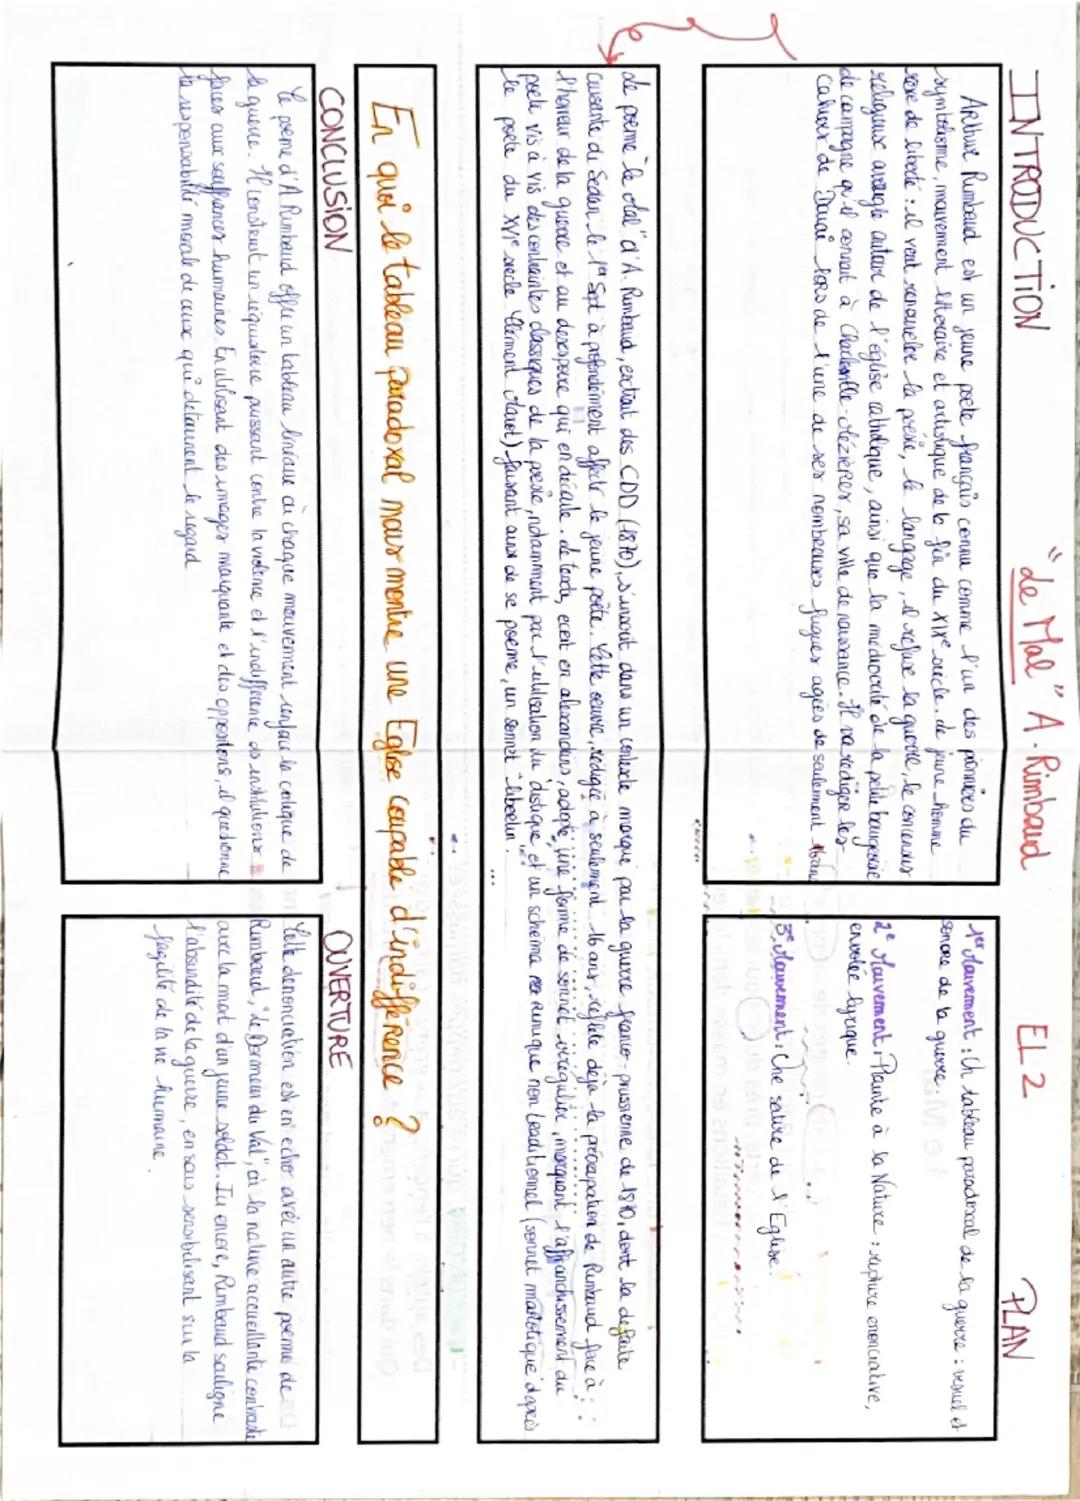 "Le Mal" A. Rimbaud EL 2
INTRODUCTION
Arthur Rimbaud est un jeune poète français connu comme l'un des pionniers du
symbolisme, mouvement littéraire et artistique de la fin du XIXe siècle. Le jeune homme
rêve de liberté : il veut renouveler la poésie, le langage, il refuse la guerre, le consensus
religieux aveugle autour de l'église catholique, ainsi que la médiocrité de la petite bourgeoisie
de campagne qu'il connait à Charleville-Mézières, sa ville de naissance. Il va rédiger les
Cahiers de Douai lors de l'une de ses nombreuses fugues agées de seulement 16ans
PLAN
1er Mouvement : Un tableau paradoxal de la guerre : visuel et
sonore de la guerre.
2e Mouvement : Plainte à la Nature : rupture énonciative,
envolée lyrique.
3e Mouvement : Une satire de l'Eglise.
Le poème "Le Mal" d'A. Rimbaud, extrait des CDD (1870), s'inscrit dans un contexte marqué par la guerre franco-prussienne de 1870, dont la défaite
cuisante de Sedan le 1er Sept à profondément affecté le jeune poète. Cette œuvre, rédigée à seulement 16 ans, reflète déjà la préocupation de Rimbaud face à
l'horreur de la guerre et au désespoir qui en découle. Le texte, écrit en alexandrins, adopte une forme de sonnet irrégulier, marquant l'affranchissement du
poète vis à vis des contraintes classiques de la poésie, notamment par l'utilisation du distique et un schéma rimique non traditionnel (sonnet marotique d'après
le poète du XVIe siècle Clément Marot) faisant ainsi de ce poème, un sonnet "libertin".
En quoi le tableau paradoxal mais montre une Eglise coupable d'indifférence ?
CONCLUSION
Le poème d'A Rimbaud offre un tableau linéaire où chaque mouvement renforce la critique de
la guerre. Il construit un réquisitoire puissant contre la violence et l'indifférence des institutions
faces aux souffrances humaines. En utilisant des images marquante et des oppositions, il questionne
la responsabilité morale de ceux qui détournent le regard
OUVERTURE
Cette dénonciation est en echo avec un autre poème de
Rimbaud, "Le Dormeur du Val", où la nature accueillante contraste
avec la mort d'un jeune soldat. Ici encore, Rimbaud souligne
l'absurdité de la guerre, en nous sensibilisant sur la
fragilité de la vie humaine.